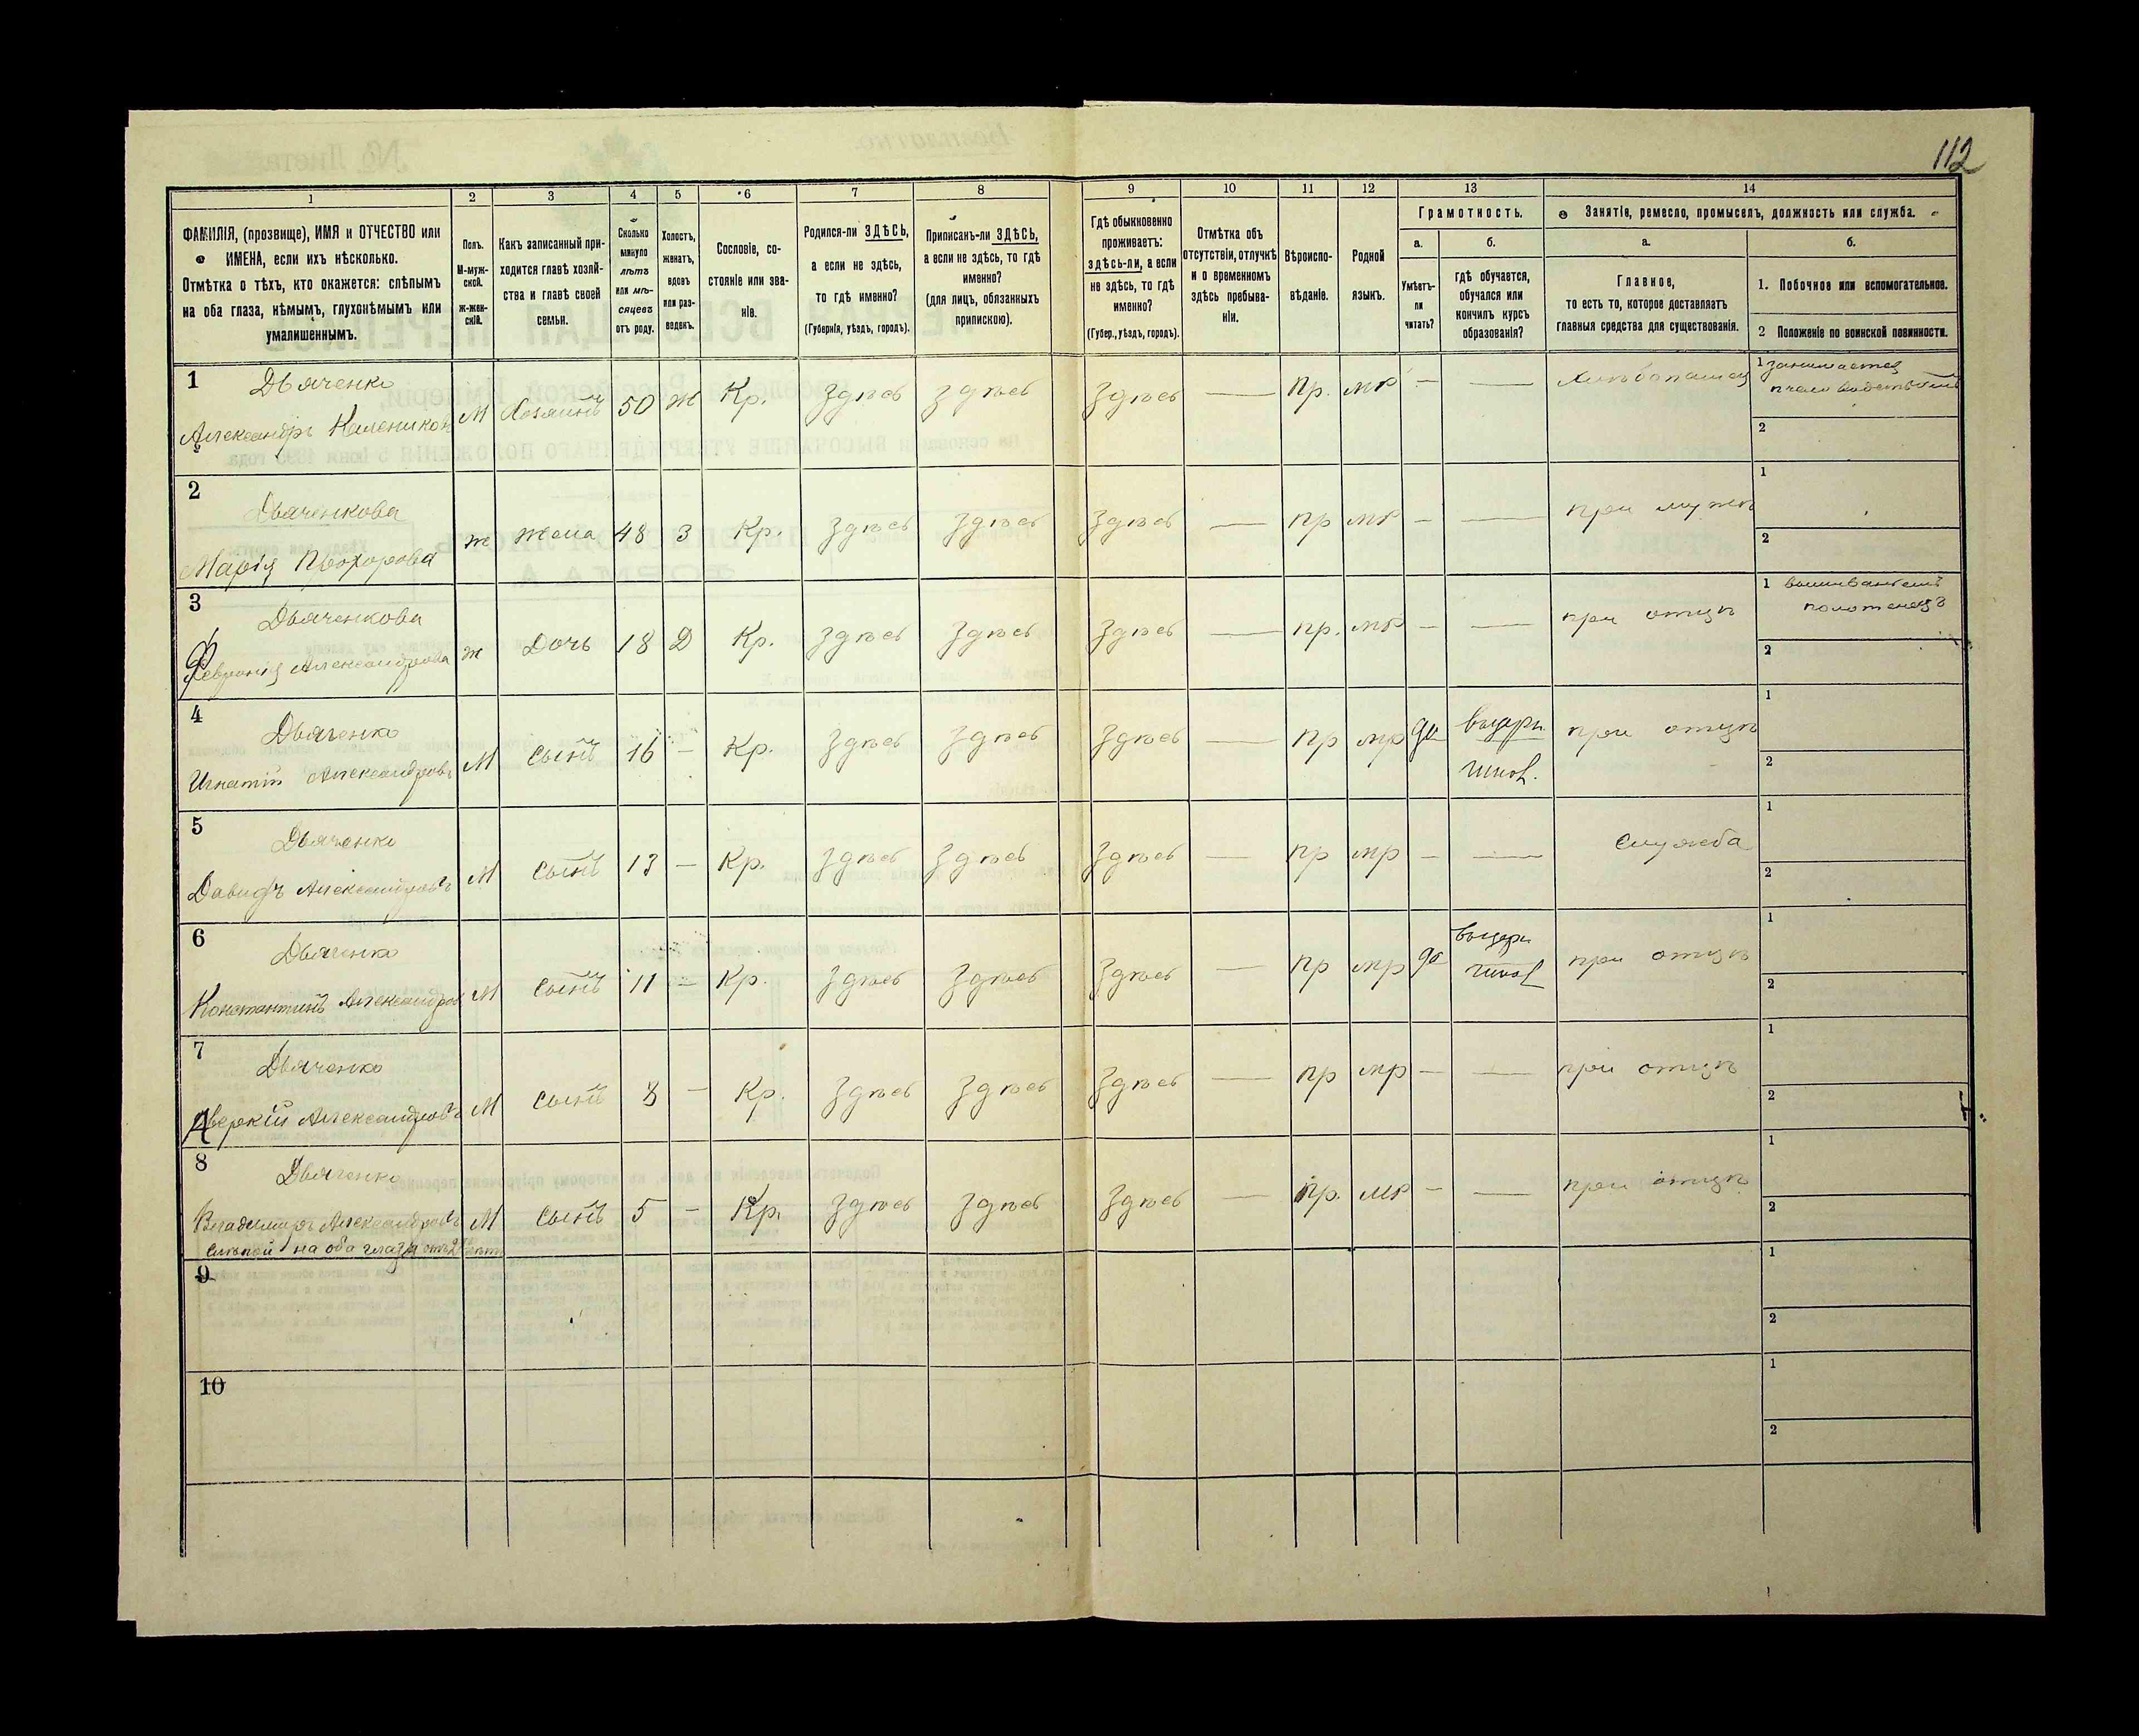 112
1 2 3 4 5 6 7 8 9 10 11 12 13 14
ФАМИЛІЯ, (прозвище), ИМЯ и ОТЧЕСТВО или
ИМЕНА, если ихъ нѣсколько.
Отмѣтка о тѣхъ, кто окажется: слѣпымъ
на оба глаза, нѣмымъ, глухонѣмымъ или
умалишеннымъ.
Полъ.
М-муж-
ской.
Ж-жен-
скій.
Какъ записанный при-
ходится главѣ хозяй-
ства и главѣ своей
семьи.
Сколько
минуло
лѣтъ
или мѣ-
сяцевъ
отъ роду.
Холостъ,
женатъ,
вдовъ
или раз-
веденъ.
Сословіе, со-
стояніе или зва-
ніе.
Родился-ли ЗДѢСЬ,
а если не здѣсь,
то гдѣ именно?
(Губернія, уѣздъ, городъ).
Приписанъ-ли ЗДѢСЬ,
а если не здѣсь, то гдѣ
именно?
(для лицъ, обязанныхъ
припискою).
Гдѣ обыкновенно
проживаетъ:
здѣсь-ли, а если
не здѣсь, то гдѣ
именно?
(Губер., уѣздъ, городъ).
Отмѣтка объ
отсутствіи, отлучкѣ
и о временномъ
здѣсь пребыва-
ніи.
Вѣроиспо-
вѣданіе.
Родной
языкъ.
Грамотность.
а.
Умѣетъ-
ли
читать?
б.
гдѣ обучается,
обучался или
кончилъ курсъ
образованія?
Занятіе, ремесло, промыселъ, должность или служба.
а.
Главное,
то есть то, которое доставляетъ
главныя средства для существованія.
б.
1. Побочное или вспомогательное.
2 Положеніе по воинской повинности.
1 Дьяченко
Александръ М Хозяинъ 50 Ж Кр. Здѣсь здѣсь Здѣсь — Пр. мр — — хлѣбопашец
1 занимается
пчеловодствомъ
2
2 Дьяченкова
Марія Прохорова ж жена 48 З Кр. Здѣсь Здѣсь Здѣсь — пр мр — — при мужѣ
1
2
3 Дьяченкова
Февронія Александрова ж Дочь 18 Д Кр. Здѣсь Здѣсь Здѣсь — пр. мр — — при отцѣ
1 вышиваніемъ
полотенецъ
2
4 Дьяченко
Игнатій Александровъ М сынъ 16 — Кр. Здѣсь Здѣсь Здѣсь — пр мр да школ. при отцѣ
1
2
5 Дьяченко
Давидъ Александровъ М сынъ 13 — Кр. Здѣсь Здѣсь Здѣсь — пр мр — — служба
1
2
6 Дьяченко
Константинъ Александров М сынъ 11 — Кр. Здѣсь Здѣсь Здѣсь — пр мр да школ при отцѣ
1
2
7 Дьяченко
Аверкій Александровъ М сынъ 8 — Кр. Здѣсь Здѣсь Здѣсь — пр мр — — при отцѣ
1
2
8 Дьяченко
Владимиръ Александровъ М сынъ 5 — Кр. Здѣсь Здѣсь Здѣсь — пр. мр — — при отцѣ
слѣпой на оба глаза отъ
1
2
9
1
2
10
1
2